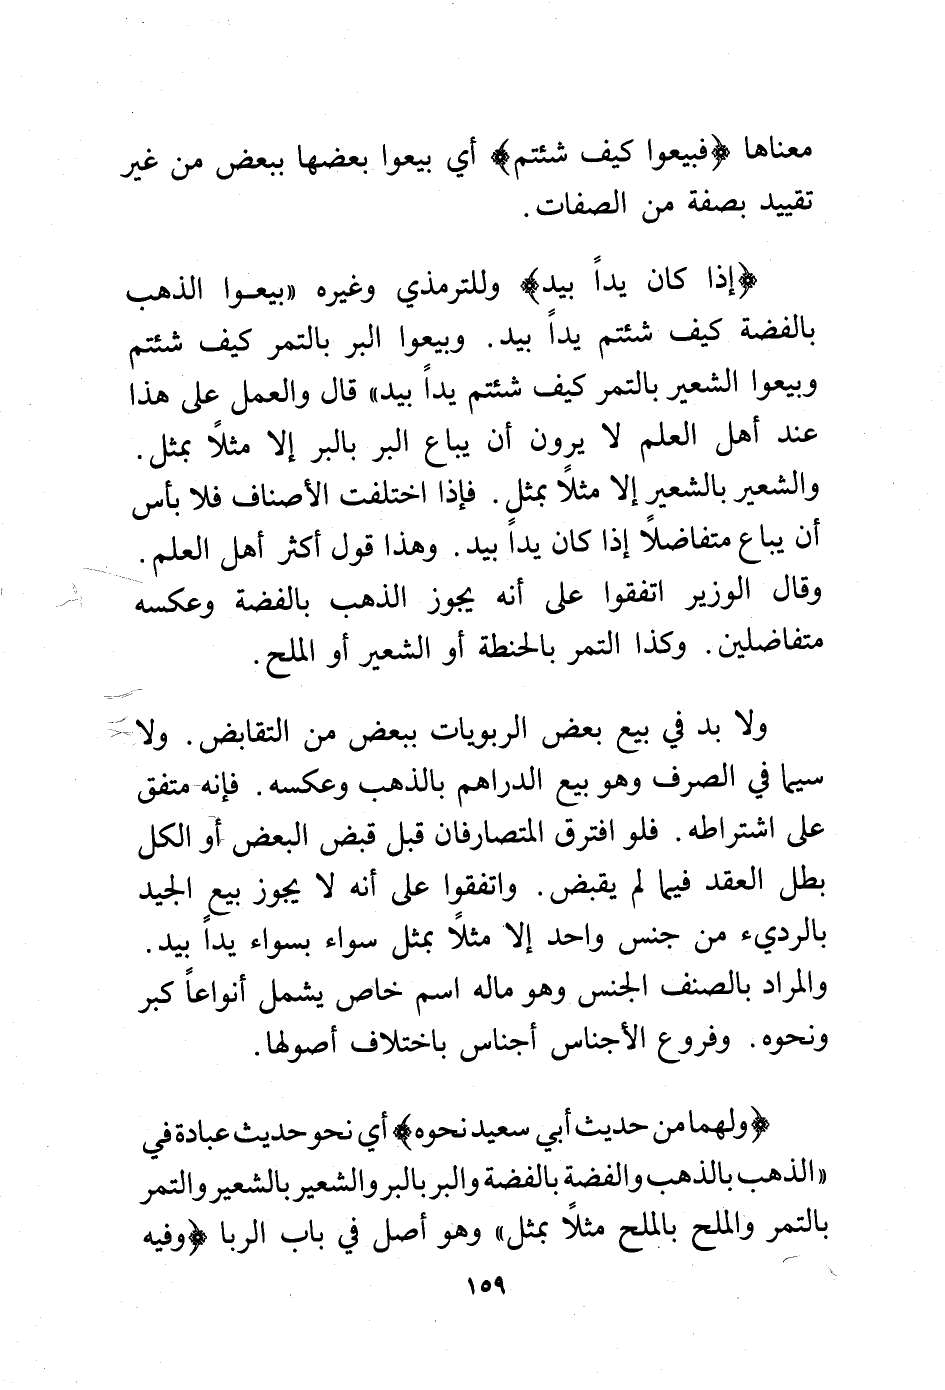 معناها ﴿فبيعوا كيف شئتم﴾ أي بيعوا بعضها ببعض من غير
تقييد بصفة من الصفات.
﴿إذا كان يداً بيد﴾ وللترمذي وغيره «بيعوا الذهب
بالفضة كيف شئتم يداً بيد. وبيعوا البر بالتمر كيف شئتم
وبيعوا الشعير بالتمر كيف شئتم يداً بيد» قال والعمل على هذا
عند أهل العلم لا يرون أن يباع البر بالبر إلا مثلاً بمثل.
والشعير بالشعير إلا مثلاً بمثل. فإذا اختلفت الأصناف فلا بأس
أن يباع متفاضلاً إذا كان يداً بيد. وهذا قول أكثر أهل العلم.
وقال الوزير اتفقوا على أنه يجوز الذهب بالفضة وعكسه
متفاضلين. وكذا التمر بالحنطة أو الشعير أو الملح.
ولا بد في بيع بعض الربويات ببعض من التقابض. ولا
سيما في الصرف وهو بيع الدراهم بالذهب وعكسه. فإنه متفق
على اشتراطه. فلو افترق المتصارفان قبل قبض البعض أو الكل
بطل العقد فيما لم يقبض. واتفقوا على أنه لا يجوز بيع الجيد
بالرديء من جنس واحد إلا مثلاً بمثل سواء بسواء يداً بيد.
والمراد بالصنف الجنس وهو ماله اسم خاص يشمل أنواعاً كبر
ونحوه. وفروع الأجناس أجناس باختلاف أصولها.
﴿ولهما من حديث أبي سعيد نحوه﴾ أي نحو حديث عبادة في
«الذهب بالذهب والفضة بالفضة والبر بالبر والشعير بالشعير والتمر
بالتمر والملح بالملح مثلاً بمثل» وهو أصل في باب الربا ﴿وفيه
١٥٩